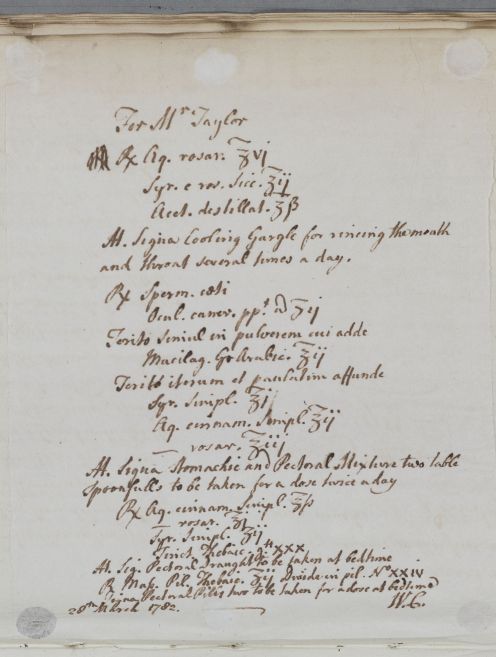 For Mr Taylor
℞ Aq. rosar. ℥vj
Syr. e ros. sicc. ℥ij
Acet. destillat. ℥ß
M. Signa Cooling Gargle for rincing the mouth
and throat several times a day.
℞ Sperm. cœti
Ocul. cancr. ppt. a ʒij
Terito simul in pulverem cui adde
Mucilag. G. Arabic. ℥ij
Terito iterum et paulatim affunde
Syr. simpl. ℥j
Aq. cinnam. simpl. ℥ij
— rosar. ℥iij
M. Signa Stomachic and Pectoral Mixture two table
spoonfulls to be taken for a dose twice a day
℞ Aq. cinnam. simpl. ℥ß
— rosar. ℥j
Syr. simpl. ʒij
Tinct. Thebaic. gtt XXX
M. Sig. Pectoral Draught to be taken at bedtime
℞ Mass. Pil. Thebaic. ʒij Divide in pil. No XXIV
Signa Pectoral Pills two to be taken for a dose at bedtime
28th March 1782. W.C.